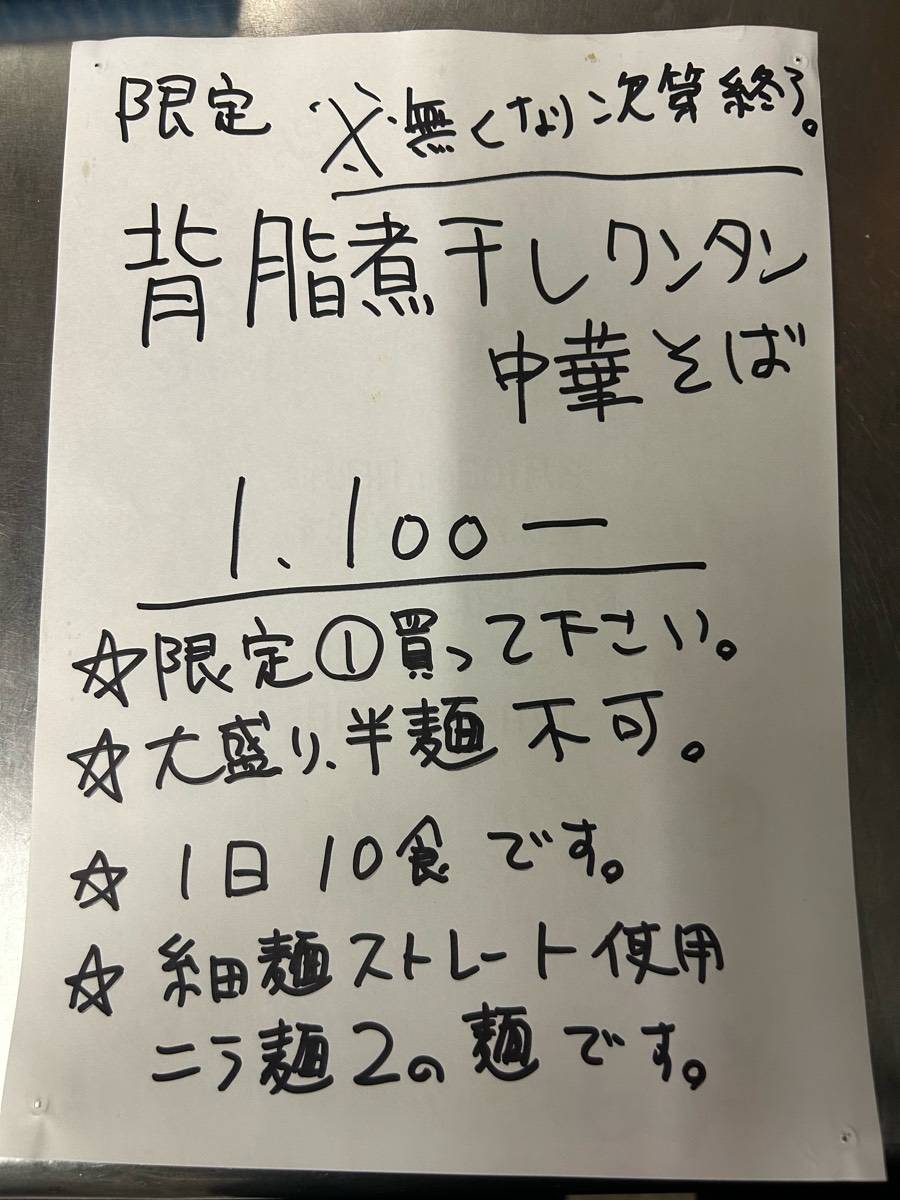 限定 ※無くなり次第終了。
背脂煮干しワンタン
中華そば
1.100ー
☆限定①買って下さい。
☆大盛り、半麺 不可。
☆ 1日 10食 です。
☆ 細麺ストレート使用
ニラ麺2の麺です。